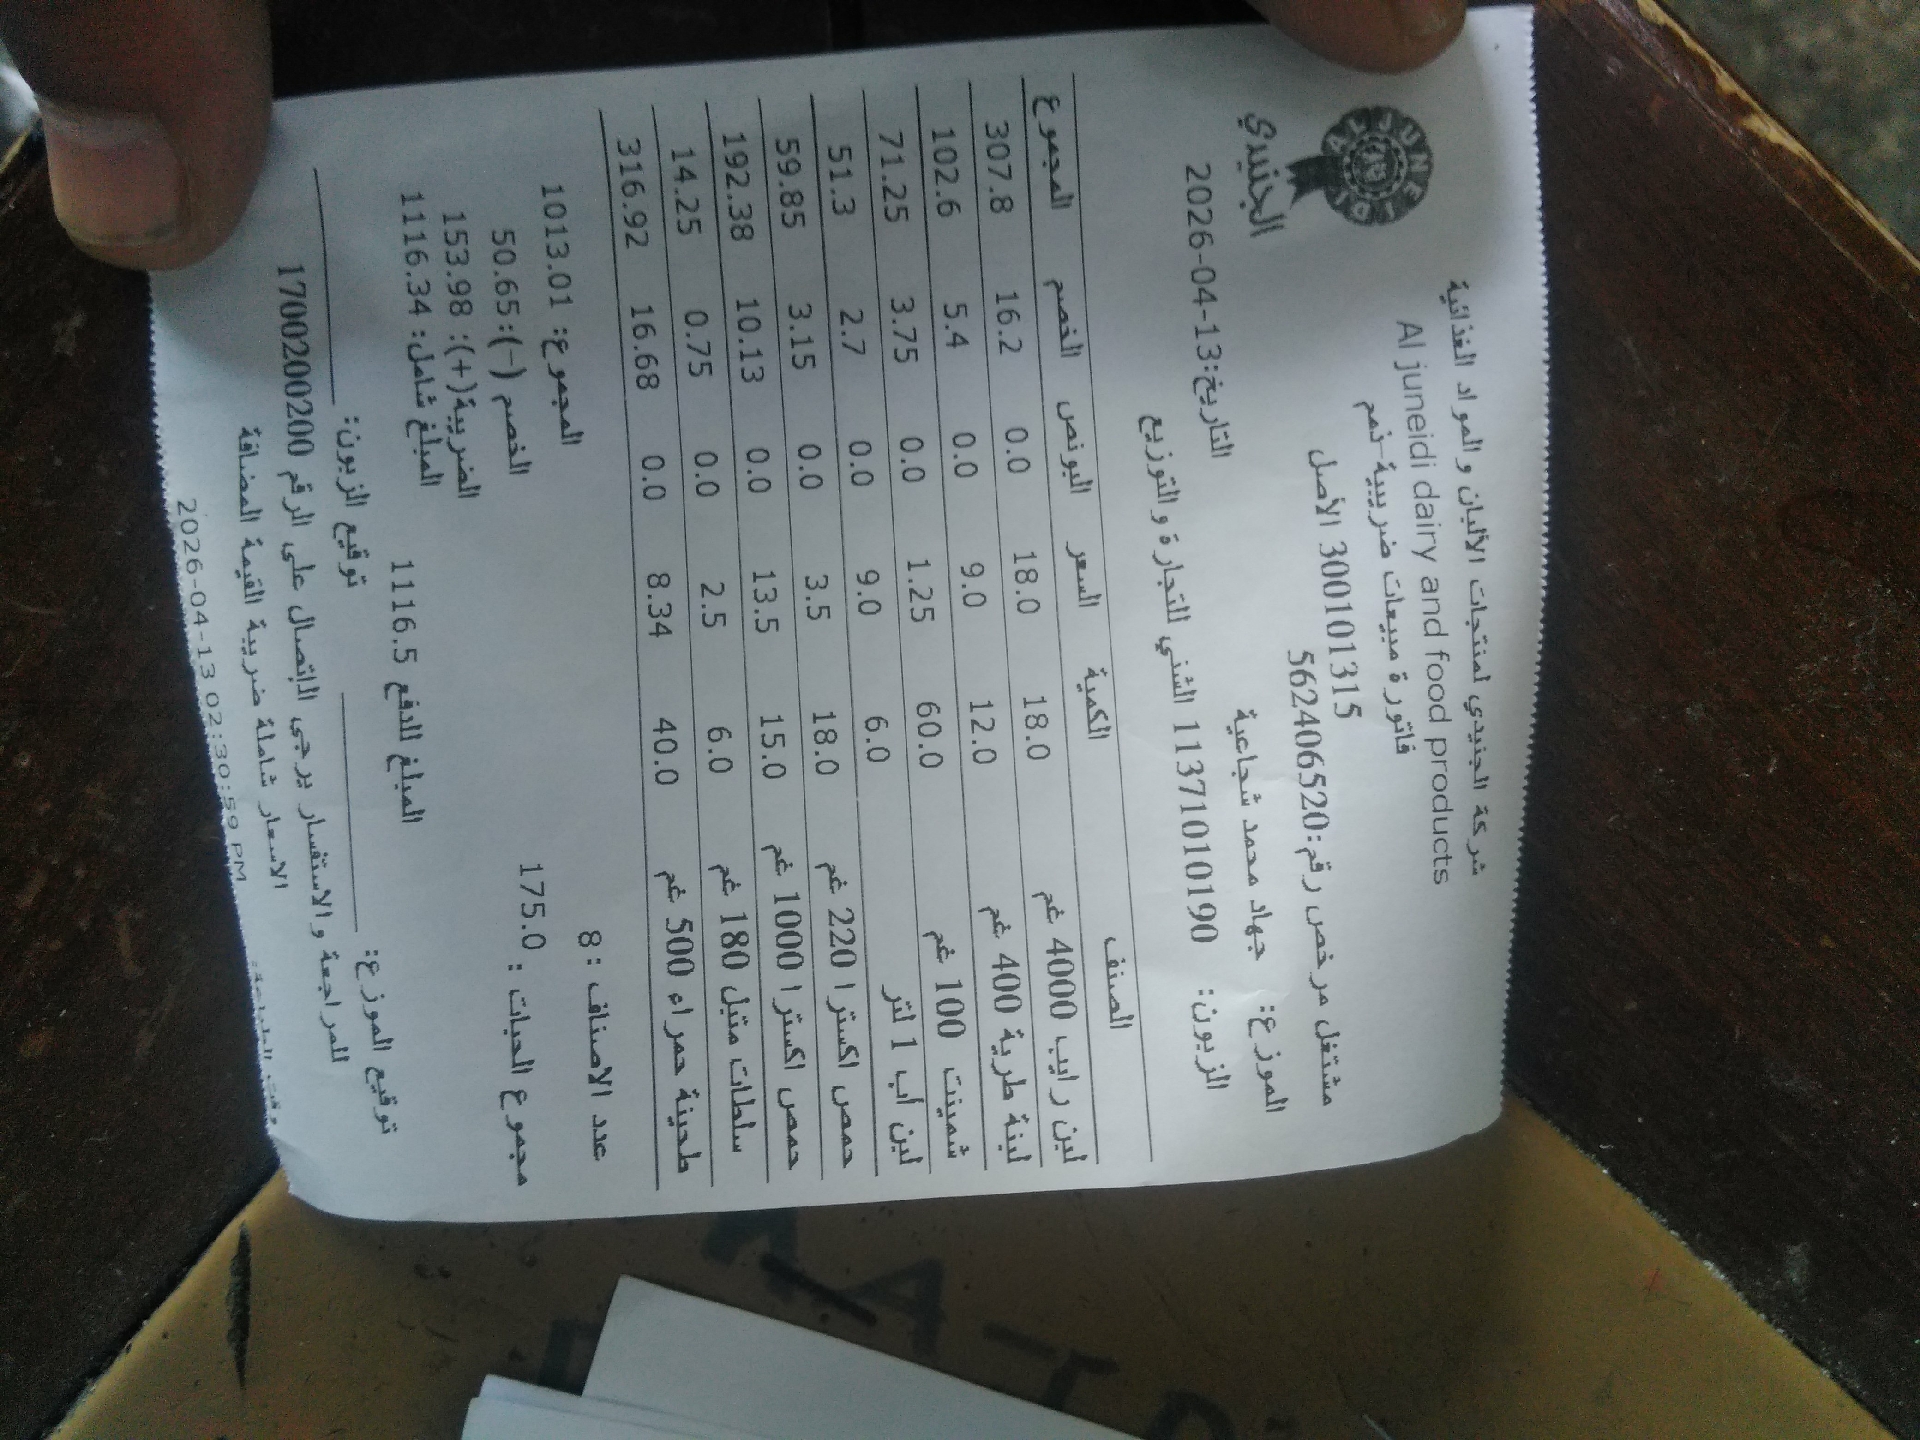 شركة الجنيدي لمنتجات الألبان و المواد الغذائية
Al juneidi dairy and food products
AL JUNEIDI
الجنيدي
فاتورة مبيعات ضريبية-ذمم
30010101315 الأصل
مشتغل مرخص رقم:562406520
الموزع: جهاد محمد شجاعية التاريخ:13-04-2026
الزبون: 11371010190 الشني للتجارة والتوزيع
الصنف الكمية السعر البونص الخصم المجموع
لبن رايب 4000 غم 18.0 18.0 0.0 16.2 307.8
لبنة طرية 400 غم 12.0 9.0 0.0 5.4 102.6
شمينت 100 غم 60.0 1.25 0.0 3.75 71.25
لبن أب 1 لتر 6.0 9.0 0.0 2.7 51.3
حمص اكسترا 220 غم 18.0 3.5 0.0 3.15 59.85
حمص اكسترا 1000 غم 15.0 13.5 0.0 10.13 192.38
سلطات متبل 180 غم 6.0 2.5 0.0 0.75 14.25
طحينة حمراء 500 غم 40.0 8.34 0.0 16.68 316.92
عدد الاصناف : 8 المجموع: 1013.01
مجموع الحبات : 175.0 الخصم (-):50.65
الضريبة(+): 153.98
المبلغ للدفع 1116.5 المبلغ شامل: 1116.34
توقيع الموزع: توقيع الزبون:
للمراجعة والاستفسار يرجى الإتصال على الرقم 1700200200
الاسعار شاملة ضريبة القيمة المضافة
2026-04-13 02:30:59 PM